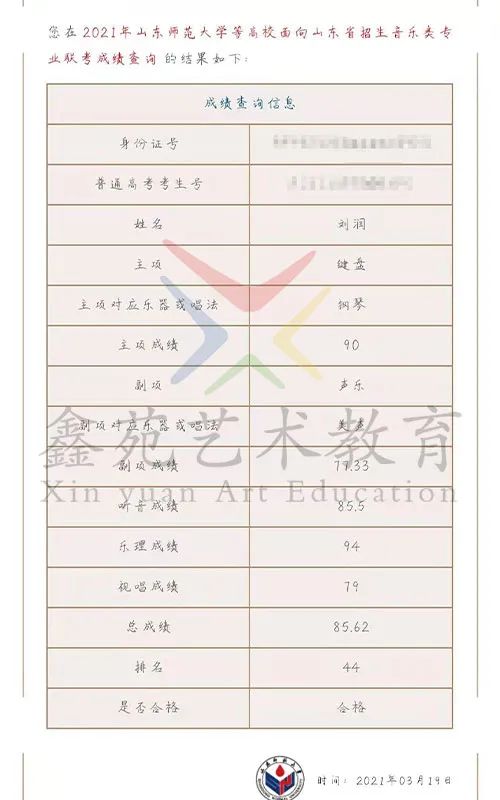 您在2021年山东师范大学等高校面向山东省招生音乐类专
业联考成绩查询 的结果如下:
成绩查询信息
身份证号
普通高考考生号
姓名 刘润
主项 键盘
主项对应乐器或唱法 钢琴
主项成绩 90
副项 声乐
副项对应乐器或唱法 美声
鑫苑艺术教育
副项成绩 77.33
Xin yuan Art Education
听音成绩 85.5
乐理成绩 94
视唱成绩 79
总成绩 85.62
排名 44
是否合格 合格
时间: 2021年03月19日